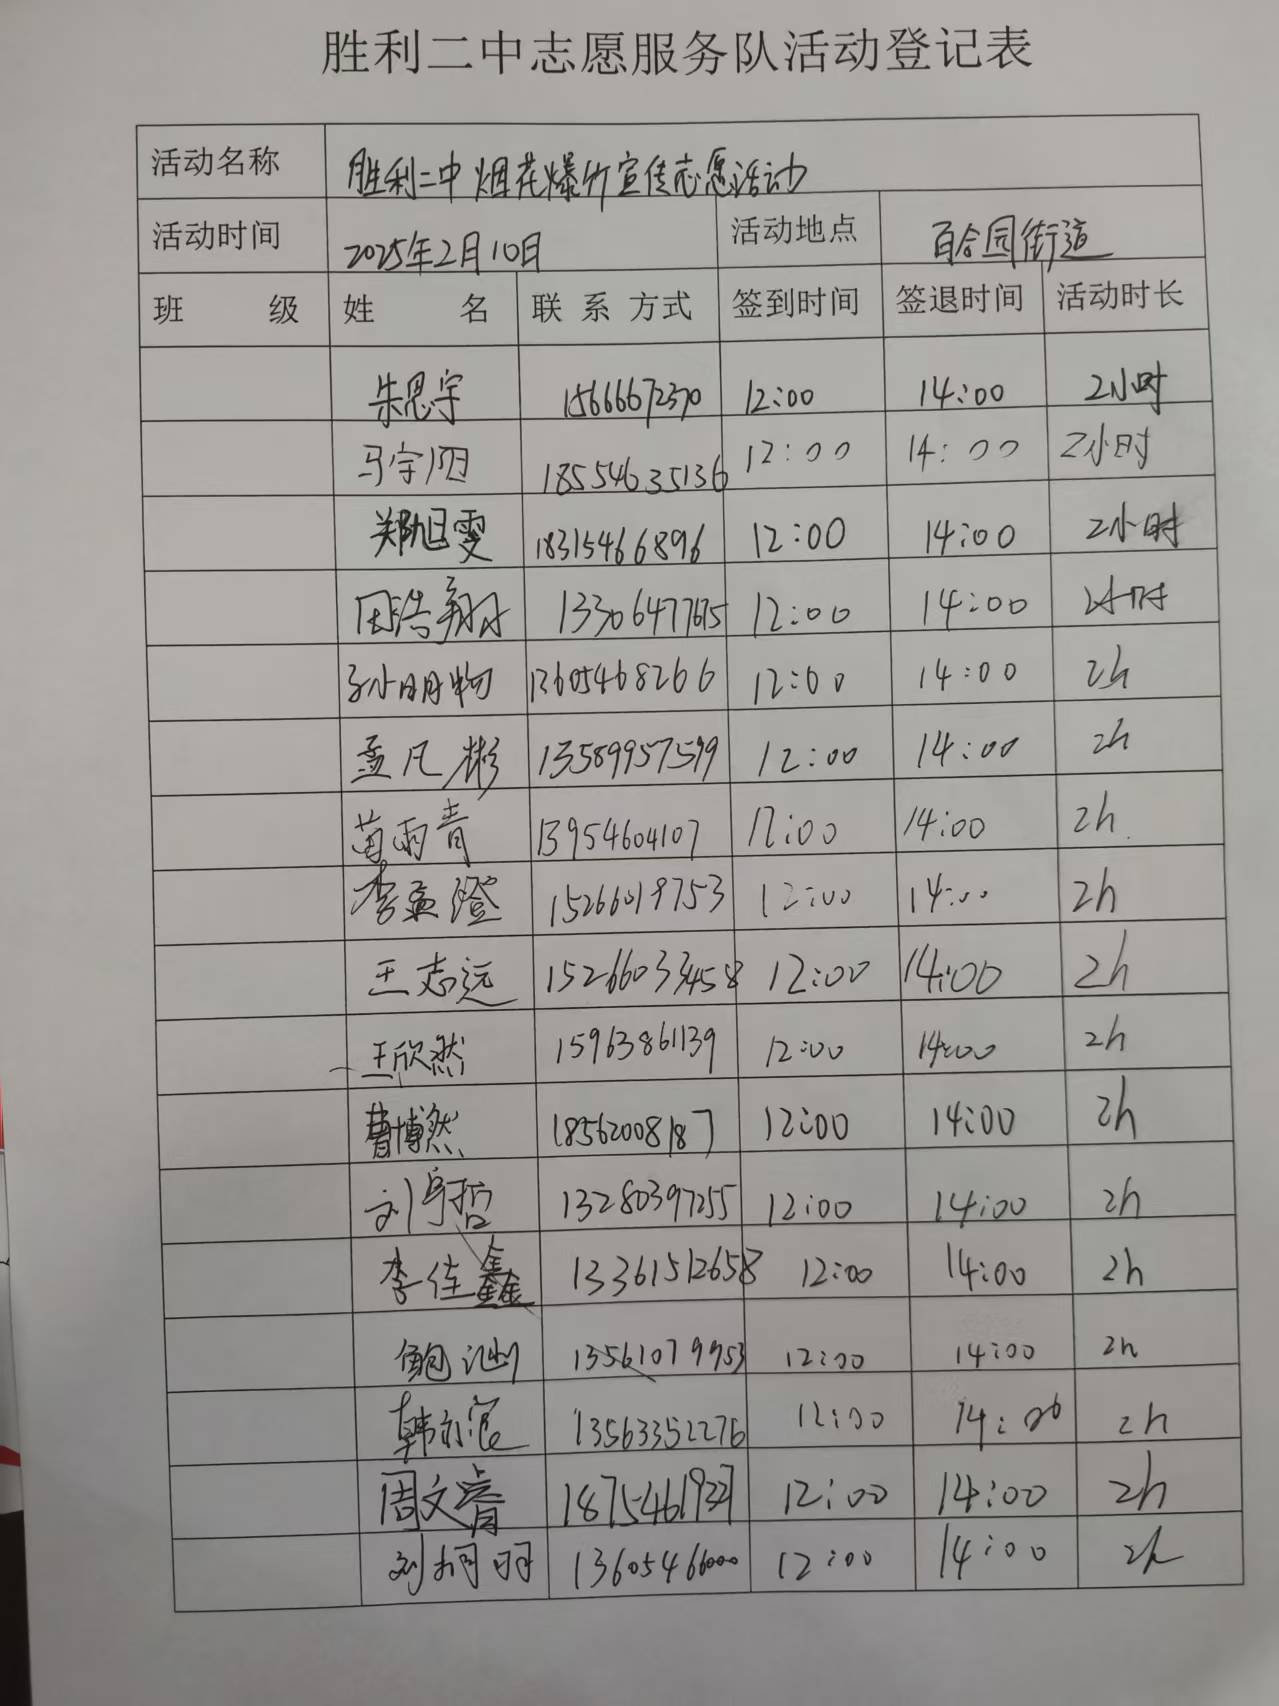 胜利二中志愿服务队活动登记表
活动名称 胜利二中烟花爆竹宣传志愿活动
活动时间 2025年2月10日 活动地点 百合园街道
班 级 姓 名 联系方式 签到时间 签退时间 活动时长
朱恩宇 15666672370 12:00 14:00 2小时
马宇阳 18554635136 12:00 14:00 2小时
郑旭雯 18315466896 12:00 14:00 2小时
田浩翔 13306477675 12:00 14:00 2小时
孙小明 13605468266 12:00 14:00 2h
孟凡彬 13589957599 12:00 14:00 2h
苗雨青 13954604107 12:00 14:00 2h
李孟澄 15266019753 12:00 14:00 2h
王志远 15266033458 12:00 14:00 2h
王欣然 15963861139 12:00 14:00 2h
曹博然 18562008187 12:00 14:00 2h
刘宇哲 13280397255 12:00 14:00 2h
李佳鑫 13361512658 12:00 14:00 2h
鲍 13561079953 12:00 14:00 2h
韩 13563352276 12:00 14:00 2h
周文睿 18754619327 12:00 14:00 2h
刘 羽 13605466000 12:00 14:00 2h